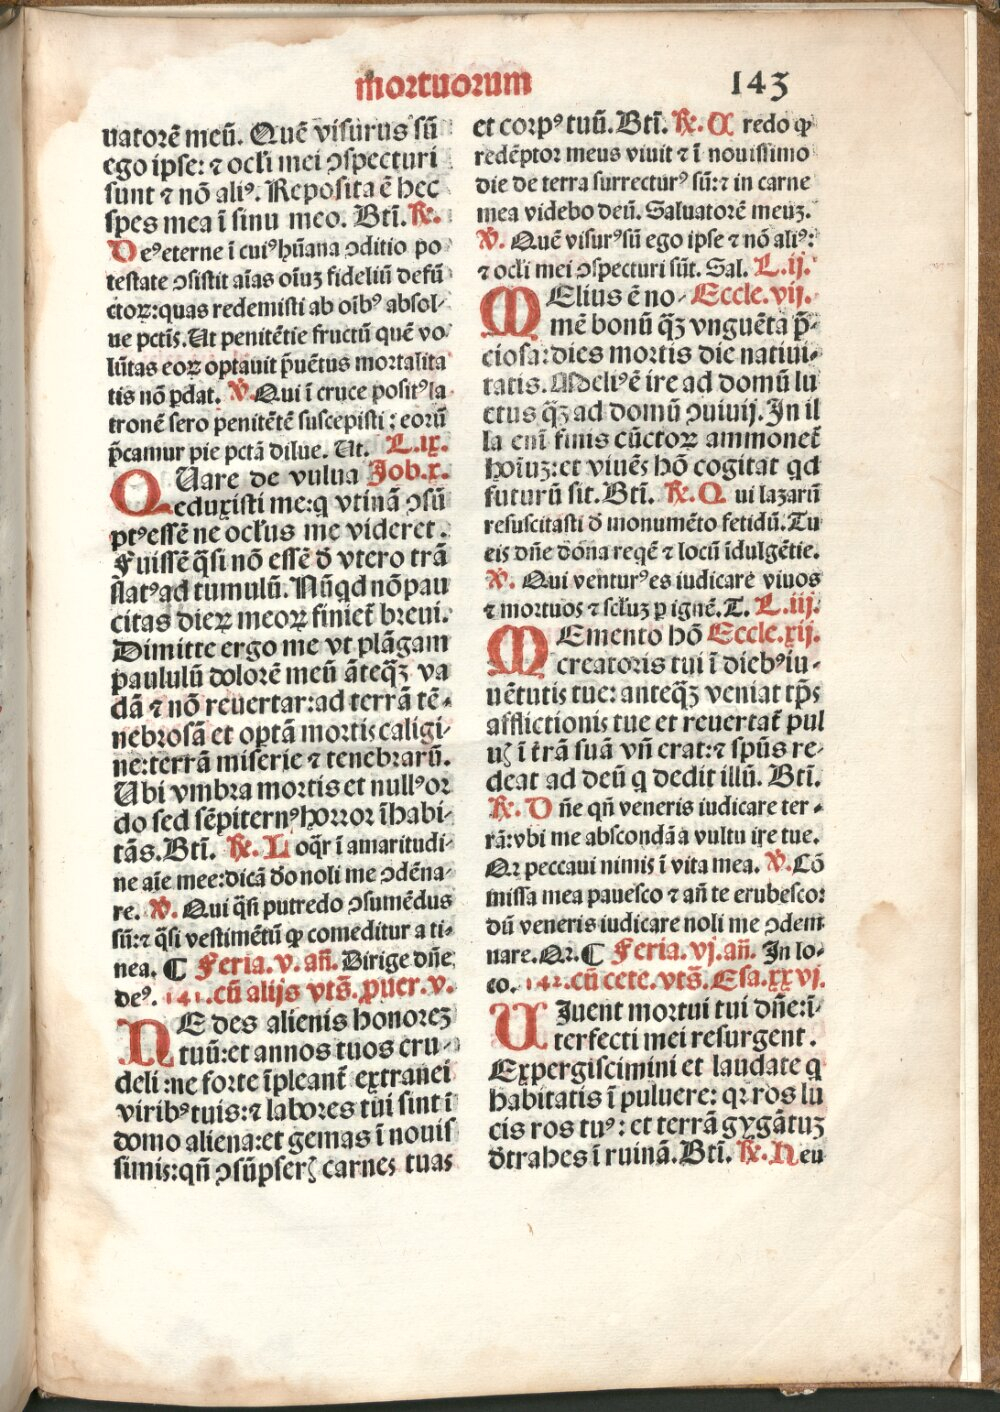 mortuorum 143
uatorē meū. Quē visurus sū
ego ipse: ⁊ ocl̄i mei ↄspecturi
sunt ⁊ nō aliꝰ. Reposita ē hec
spes mea ī sinu meo. Btī. ℟.
Deꝰ eterne ī cuiꝰ hūana ↄditio po
testate ↄsistit aīas oīuꝫ fideliū defū
ctoꝝ: quas redemisti ab oībꝰ absol-
ue pctīs. Ut penitētie fructū quē vo
lūtas eoꝝ optauit p̄uētus mortalita
tis nō pdat. ℣. Qui ī cruce positꝰ la
tronē sero penitētē suscepisti: eorū
p̄camur pie pctā dilue. Ut. L.ix.
QUare de vulua Job.x.
eduxisti me: q vtinā ↄsū
ptꝰ essē ne ocl̄us me videret.
Fuissē q̄si nō essē đ vtero trā
slatꝰ ad tumulū. Nūqd nō pau
citas dieꝝ meoꝝ finiet̄ breui.
Dimitte ergo me vt plāgam
paululū dolorē meū āteq̄ꝫ va
dā ⁊ nō reuertar: ad terrā tē-
nebrosā et optā mortis caligi-
ne: terrā miserie ⁊ tenebrarū.
Ubi vmbra mortis et nullꝰ or
do sed sēpiternꝰ horror īhabi-
tās. Btī. ℟. Loq̄r ī amaritudi-
ne aīe mee: dicā đo noli me ↄdēna-
re. ℣. Qui q̄si putredo ↄsumēdus
sū: ⁊ q̄si vestimētū qꝫ comeditur a ti-
nea. ¶ Feria.v. añ. Dirige dñe
deꝰ. 141. cū alijs vts̄. Prouer.v.
NE des alienis honoreꝫ
tuū: et annos tuos cru-
deli: ne forte īpleant̄ extranei
viribꝰ tuis: ⁊ labores tui sint ī
domo aliena: et gemas ī nouis
simis: qñ ↄsūpserꝭ carnes tuas
et corpꝰ tuū. Btī. ℟. Credo qꝫ
redēptor meus viuit ⁊ ī nouissimo
die de terra surrecturꝰ sū: ⁊ in carne
mea videbo deū. Saluatorē meuꝫ.
℣. Quē visurꝰ sū ego ipse ⁊ nō aliꝰ:
⁊ ocl̄i mei ↄspecturi sūt. Sal. L.ij.
MElius ē no- Eccle.vij.
mē bonū q̄ꝫ vnguēta p̄-
ciosa: dies mortis die natiui-
tatis. Meliꝰ ē ire ad domū lu
ctus q̄ꝫ ad domū ↄuiuij. In il
la enī finis cūctoꝝ ammonet̄
hoīuꝫ: et viuēs hō cogitat qd
futurū sit. Btī. ℟. Qui lazarū
resuscitasti đ monumēto fetidū. Tu
eis dñe dōna reqē ⁊ locū īdulgētie.
℣. Qui venturꝰ es iudicare viuos
⁊ mortuos ⁊ sclūꝫ p ignē. T. L.iij.
MEmento hō Eccle.xij.
creatoris tui ī diebꝰ iu-
uētutis tue: anteq̄ꝫ veniat tp̄s
afflictionis tue et reuertat̄ pul
uꝭ ī t̄rā suā vñ erat: ⁊ spūs re-
deat ad deū q dedit illū. Btī.
℟. Dñe qñ veneris iudicare ter-
rā: vbi me abscondā a vultu ire tue.
Qꝛ peccaui nimis ī vita mea. ℣. Cō
missa mea pauesco ⁊ añ te erubesco:
dū veneris iudicare noli me ↄdem
nare. Qꝛ. ¶ Feria.vj. añ. In lo-
co. 142. cū cete. vts̄. Esa.xxvj.
UIuent mortui tui dñe: ī-
terfecti mei resurgent.
Expergiscimini et laudate q
habitatis ī puluere: qꝛ ros lu
cis ros tuꝰ: et terrā gygātuꝫ
đtrahes ī ruinā. Btī. ℟. Neu